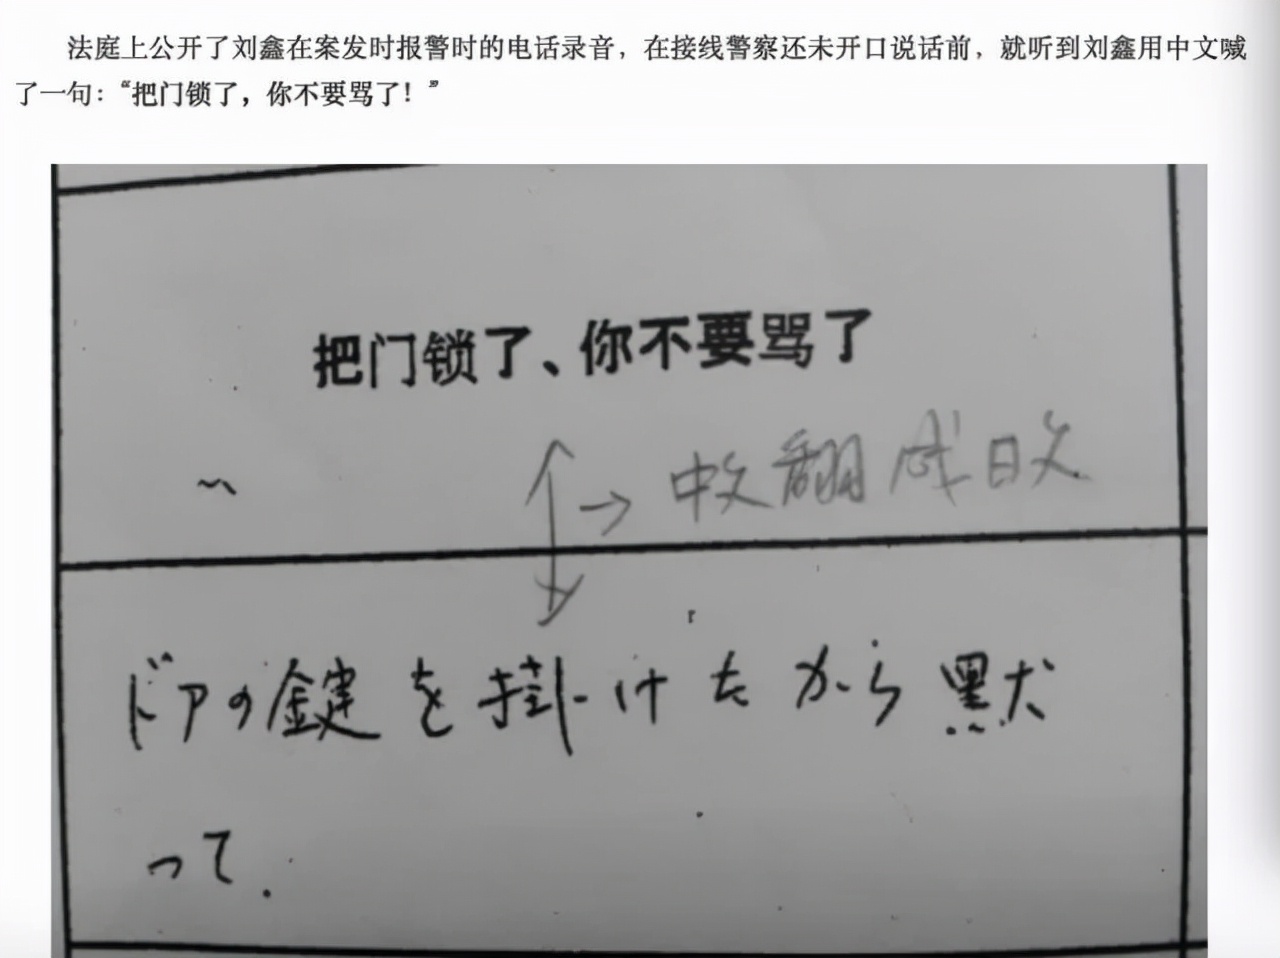 法庭上公开了刘鑫在案发时报警时的电话录音，在接线警察还未开口说话前，就听到刘鑫用中文喊
了一句：“把门锁了，你不要骂了！”
把门锁了、你不要骂了
→中文翻成日文
ドアの鍵を掛けたから黙
って.